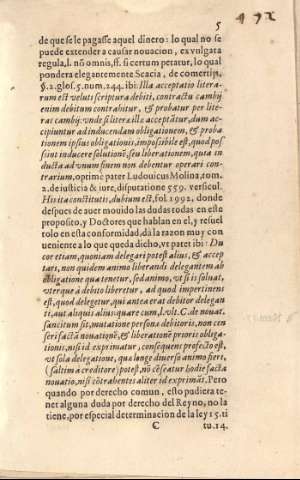 5
de que se le pagasse aquel dinero: lo qual no se
puede extender a causar nouacion, ex vulgata
regula, l. nõ omnis, ff. si certum petatur, lo qual
pondera elegantemente Scacia, de comertijs,
§. 2. glos. 5. num. 244. ibi: Illa acceptatio litera-
rum est veluti scriptura debiti, contractu cambij
enim debitum contrahitur, & probatur per lite-
rat cambij: vnde si literæ illæ acceptãtur, dum ac-
cipiuntur ad inducendam obligationem, & proba-
tionem ipsius obligationis, impossibile est, quod pos
sint inducere solutionẽ, seu liberationem, quia in
ducta ad vnum finem non debentur operari con-
trarium, optimè pater Ludouicus Molina, tom.
2. de iusticia & iure, disputatione 559. versicul.
His ita constitutis, dubium est, fol. 1992, donde
despues de auer mouido las dudas todas en este
proposito, y Doctores que hablan en el, y resuel
tolo en esta conformidad, dà la razon muy con
ueniente a lo que queda dicho, vt patet ibi: Du
cor etiam, quoniam delegari potest alius, & accep
tari, non quidem animo liberandi delegantem ab
obligatione qua tenetur, sed animo, vt si is soluat,
vterque à debito liberetur, ad quod impertinens
est, quod delegetur, qui antea erat debitor delegan
ti, aut aliquis alius: quare cum, l. vlt. C. de nouat.
sancitum sit, mutatione personæ debitoris, non cen
seri factã nouationẽ, & liberationẽ prioris obliga-
tionis, nisi id exprimatur, consequens profecto est,
vt sola delegatione, quæ longe diuerso animo fieri,
(saltim à creditore) potest, nõ cẽseatur hodie facta
nouatio, nisi cõtrahentes aliter id exprimãt. Pero
quando por derecho comun, esto pudiera te-
ner alguna duda por derecho del Reyno, no la
tiene, por especial determinacion de la ley 15. ti
C
tu. 14.